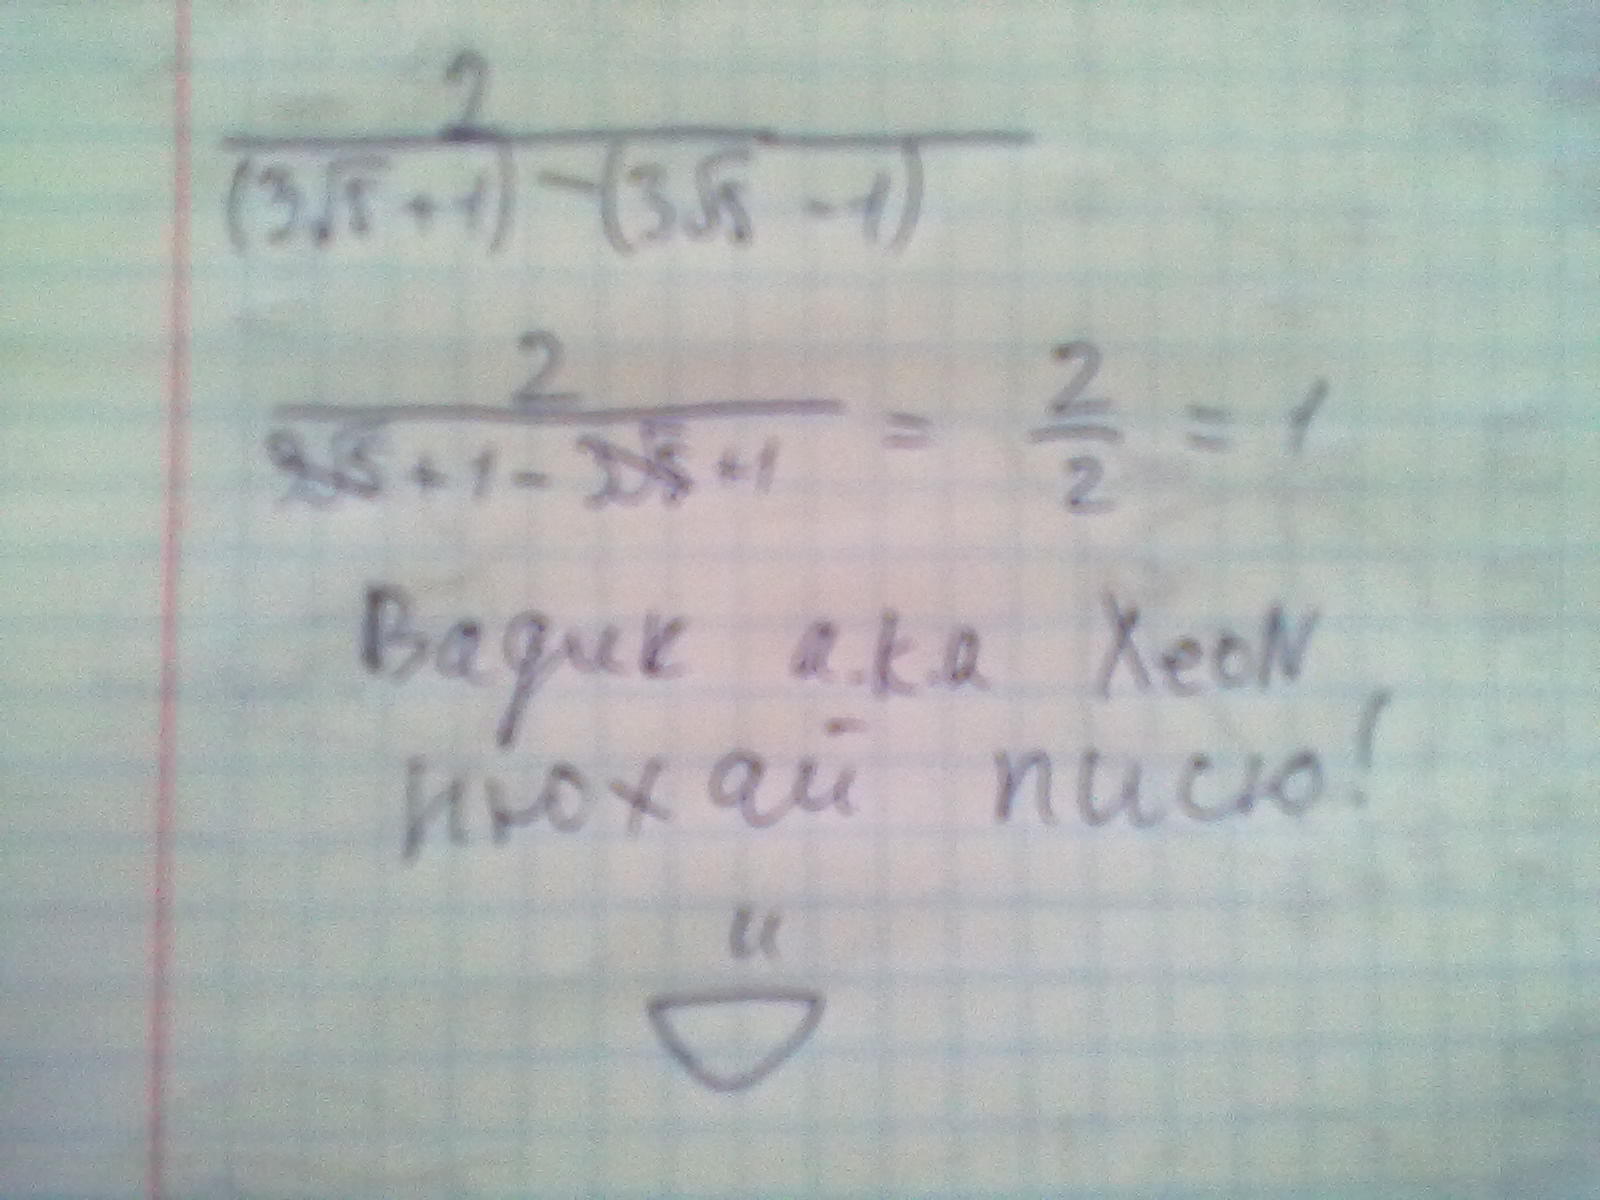 2
(3√5 + 1) - (3√5 - 1)
2
3√5 + 1 - 3√5 + 1 = 2/2 = 1
Вадик a.k.a XeoN
нюхай писю!